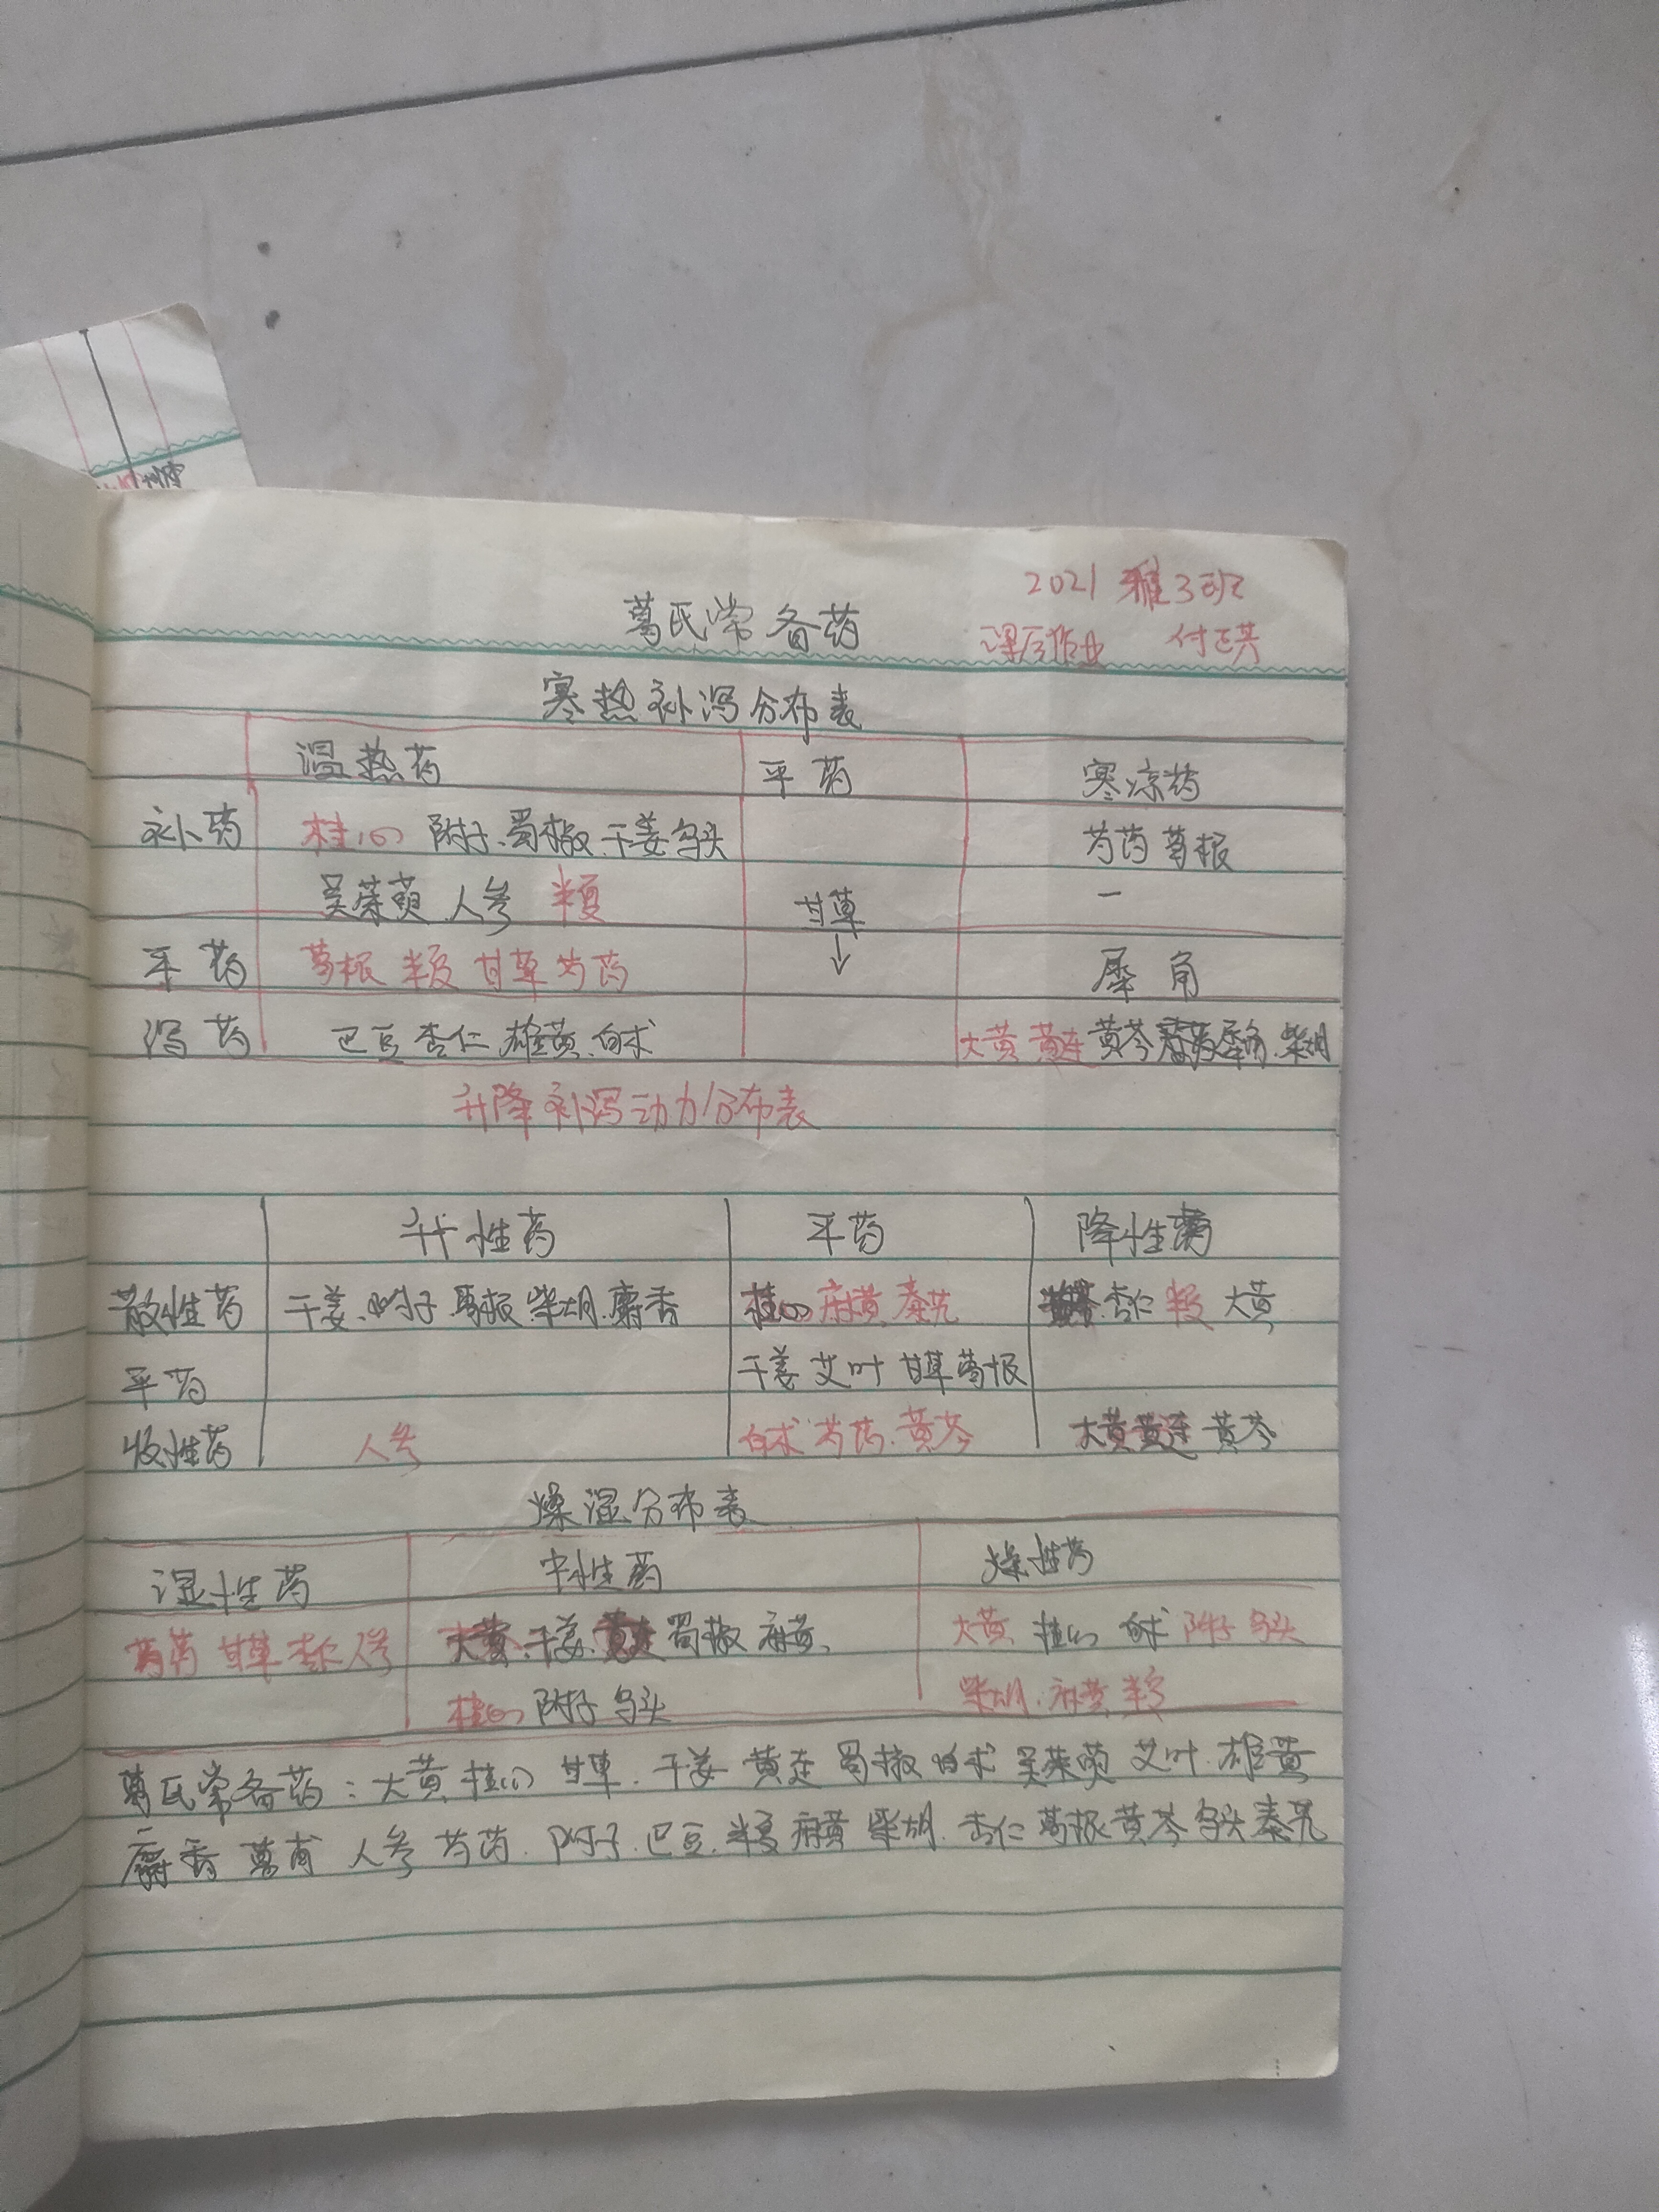 2021 雅3班
葛氏常备药 课后作业 付正英
寒热补泻分布表
温热药 平药 寒凉药
补药 桂心 附子、蜀椒、干姜 乌头 芍药 葛根
吴茱萸 人参 半夏 甘草 一
↓
平药 葛根 半夏 甘草 芍药 犀角
泻药 巴豆 杏仁 雄黄、白术 大黄 黄连 黄芩 犀角、柴胡
升降补泻动力分布表
升性药 平药 降性药
散性药 干姜、附子 葛根 柴胡、麝香 桂心 麻黄、秦艽 杏仁 半夏 大黄
平药 干姜 艾叶 甘草 葛根
收性药 人参 白术 芍药、黄芩 大黄 黄连 黄芩
燥湿分布表
湿性药 中性药 燥性药
芍药 甘草 杏仁 人参 大黄、干姜、黄连 蜀椒 麻黄、 大黄 桂心 白术 附子 乌头
桂心 附子 乌头 柴胡、麻黄 半夏
葛氏常备药：大黄 桂心 甘草、干姜 黄连 蜀椒 白术 吴茱萸 艾叶、雄黄
麝香 人参 芍药、附子、巴豆、半夏 麻黄 柴胡、杏仁 葛根 黄芩 乌头 秦艽